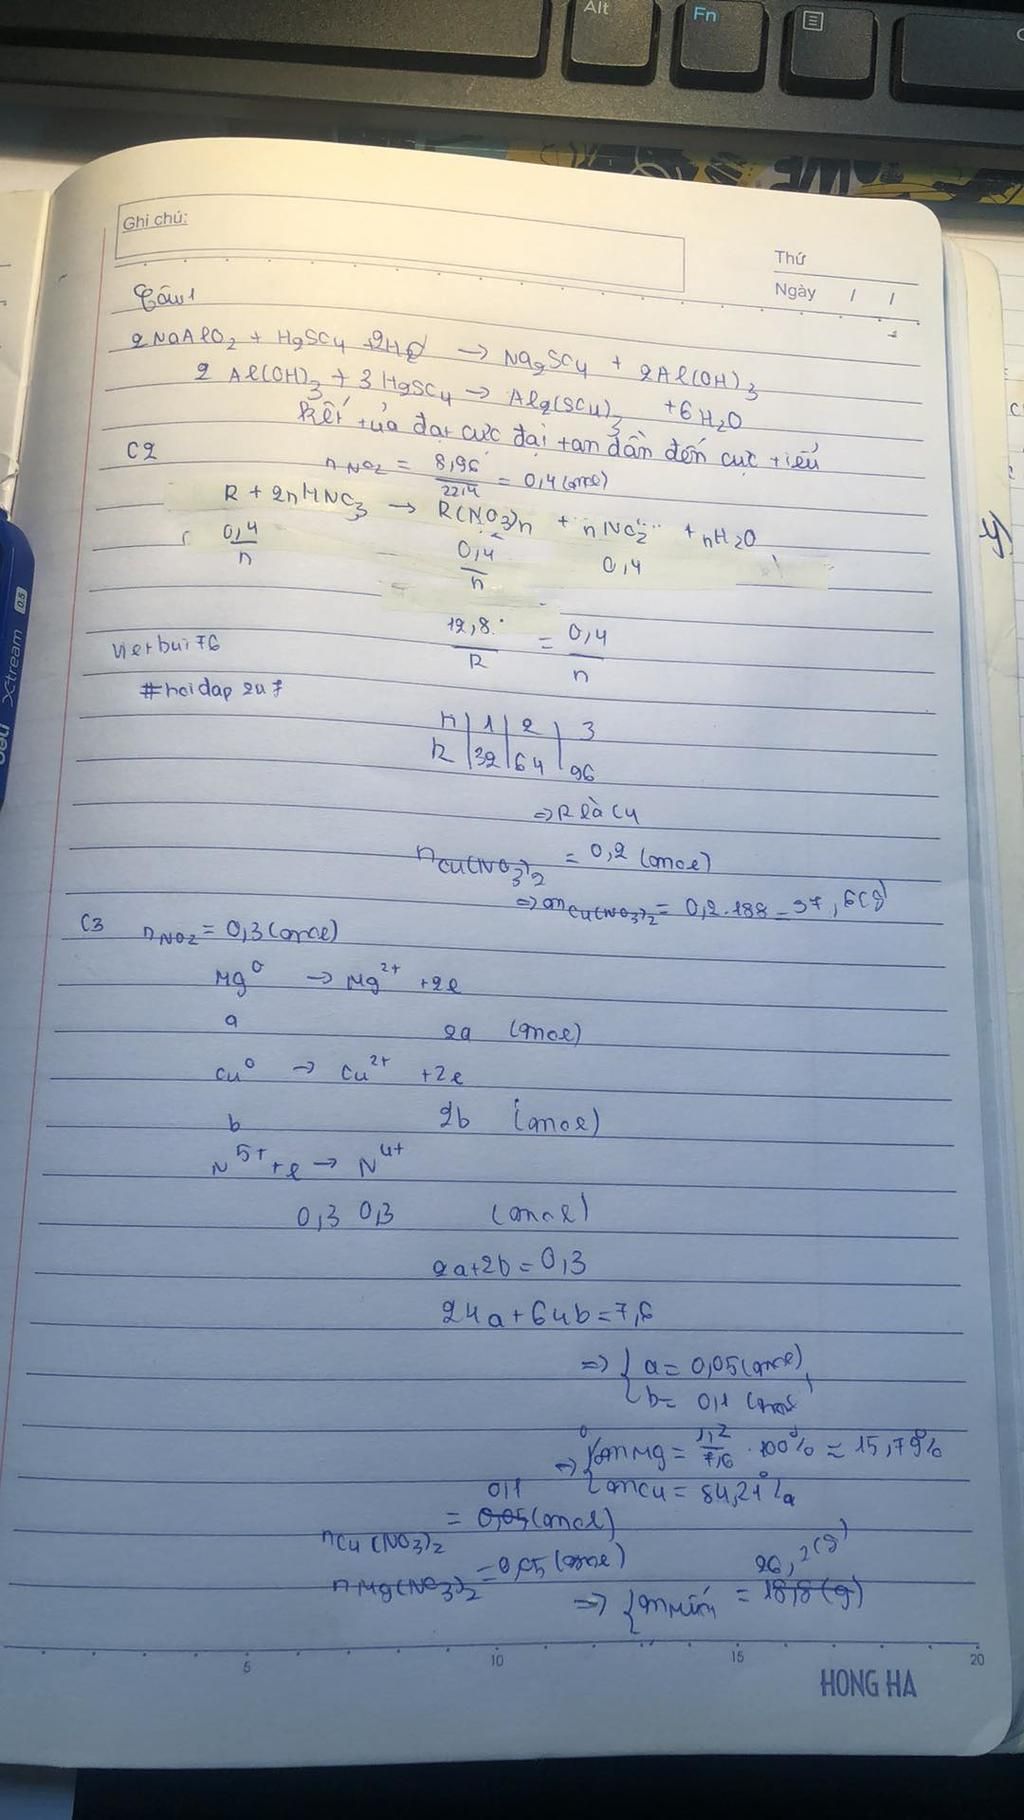 Alt
Fn
Ghi chú:
Thứ
Ngày / /
Câu 1
2NaAlO2 + H2SO4 + 2H2O → Na2SO4 + 2Al(OH)3
2Al(OH)3 + 3H2SO4 → Al2(SO4)3 + 6H2O
Kết tủa đạt cực đại tan dần đến cực tiểu
C2
nNO2 = 8,96/22,4 = 0,4 (mol)
R + 2nHNO3 → R(NO3)n + nNO2 + nH2O
0,4/n 0,4/n 0,4
12,8/R = 0,4/n
vietbui76
#hoidap247
n | 1 | 2 | 3
R | 32 | 64 | 96
⇒ R là Cu
nCu(NO3)2 = 0,2 (mol)
⇒ mCu(NO3)2 = 0,2.188 = 37,6(g)
C3 nNO2 = 0,3 (mol)
Mg⁰ → Mg²⁺ + 2e
a 2a (mol)
Cu⁰ → Cu²⁺ + 2e
b 2b (mol)
N⁵⁺ + e → N⁴⁺
0,3 0,3 (mol)
2a+2b = 0,3
24a + 64b = 7,6
⇒ { a = 0,05 (mol)
b = 0,1 (mol)
⇒ { %mMg = 1,2/7,6 . 100% ≈ 15,79%
%mCu = 84,21%
nCu(NO3)2 = 0,05 0,1 (mol)
nMg(NO3)2 = 0,05 (mol)
⇒ { mmuối = 18,8 (g) 26,2 (g)
5 10 15 20
HONG HA
deli Xtream 0.5